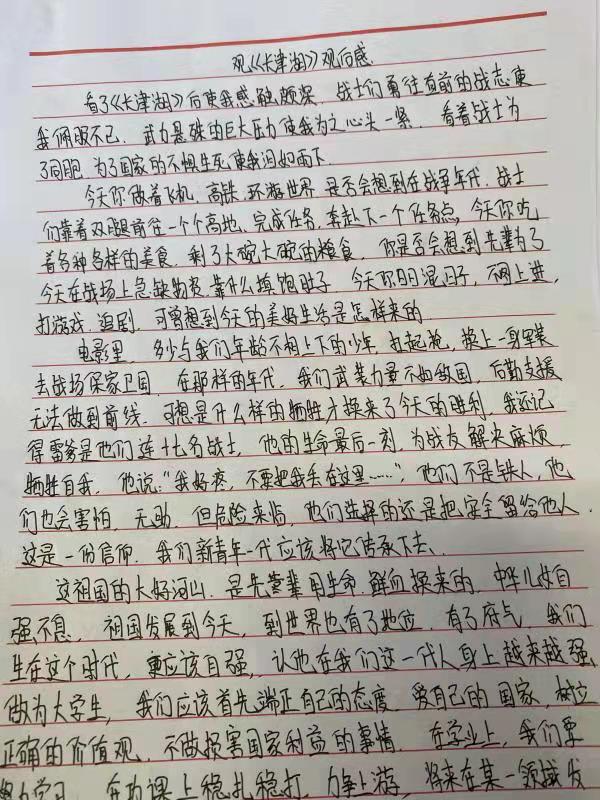 观《长津湖》观后感
看了《长津湖》后使我感触颇深，战士们勇往直前的战志使
我佩服不已，武力悬殊的巨大压力使我为之心头一紧，看着战士为
了同胞，为了国家的不惧生死使我泪如雨下
今天你做着飞机，高铁，环游世界，是否会想到在战争年代，战士
们靠着双腿前往一个个高地，完成任务，奔赴下一个任务点，今天你吃
着各种各样的美食，剩了大碗大碗的粮食，你是否会想到先辈为了
今天在战场上急缺物资，靠什么填饱肚子，今天你日日混日子，不求上进，
打游戏，追剧，可曾想到今天的美好生活是怎样来的
电影里，多少与我们年龄不相上下的少年，扛起枪，换上一身军装
去战场保家卫国，在那样的年代，我们武装力量不如敌国，后勤支援
无法做到前线，可想是什么样的牺牲才换来了今天的胜利，我还记
得雷爹是他们连十七名战士，他的生命最后一刻，为战友解决麻烦，
牺牲自我，他说：“我好疼，不要把我丢在这里……”，他们不是铁人，他
们也会害怕，无助，但危险来临，他们选择的还是把安全留给他人，
这是一份信仰，我们新青年一代应该将记传承下去、
这祖国的大好河山，是先辈用生命，鲜血换来的，中华儿女自
强不息，祖国发展到今天，到世界也有了地位，有了底气，我们
生在这个时代，更应该自强，让他在我们这一代人身上越来越强，
做为大学生，我们应该首先端正自己的态度，爱自己的国家，树立
正确的价值观，不做损害国家利益的事情，在学业上，我们要
努力学习，在功课上稳扎稳打，力争上游，将来在某一领域发